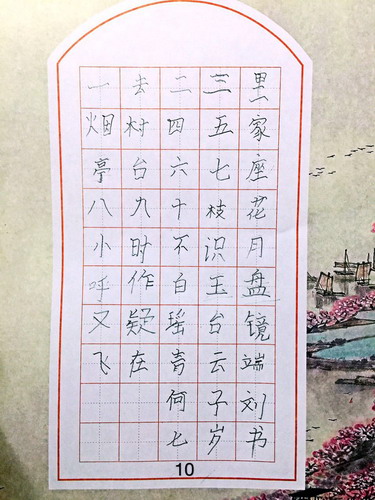 一去二三里
烟村四五家
亭台六七座
八九十枝花
小时不识月
呼作白玉盘
又疑瑶台镜
飞在青云端
何子刘
七岁书
10